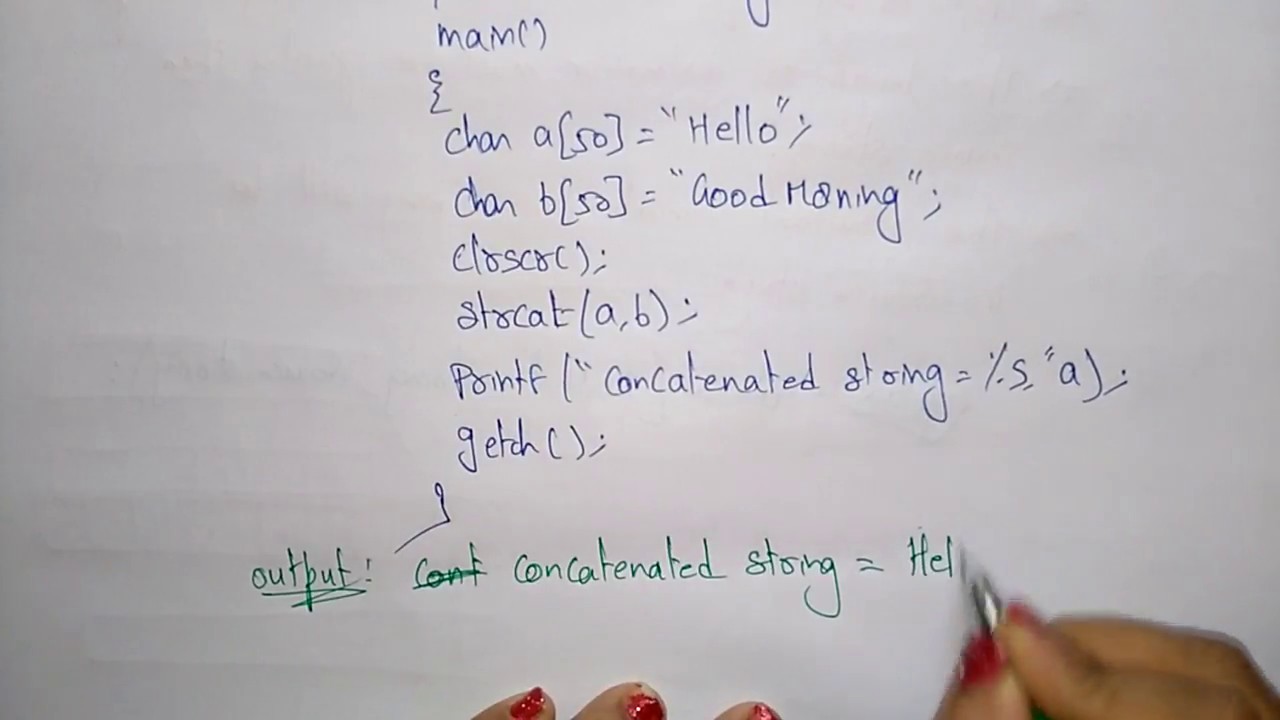 main()
{
char a[50] = "Hello";
char b[50] = "Good Morning";
clrscr();
strcat(a,b);
Printf ("Concatenated string = %s "a);
getch();
}
output: Cont Concatenated string = Hel